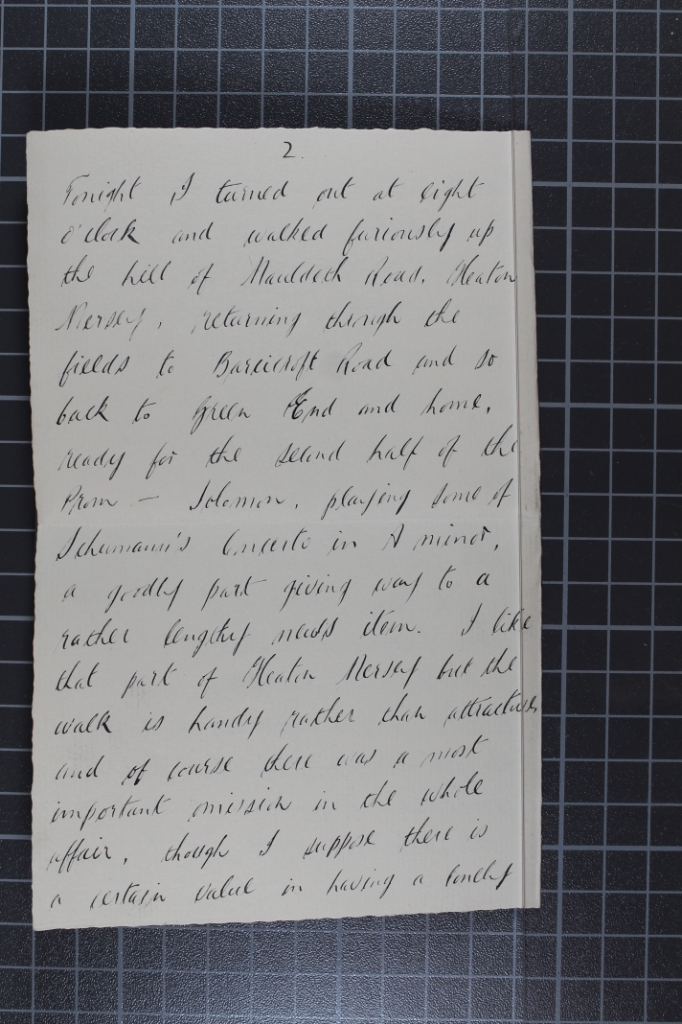 2.
Tonight I turned out at eight
o'clock and walked furiously up
the hill of Mauldeth Road, Heaton
Mersey, returning through the
fields to Burnicroft Road and so
back to Green End and home,
ready for the second half of the
Prom — Solomon, playing some of
Schumann's Concerto in A minor,
a goodly part giving way to a
rather lengthy news item. I like
that part of Heaton Mersey but the
walk is handy rather than attractive,
and of course there was a most
important omission in the whole
affair, though I suppose there is
a certain value in having a lonely